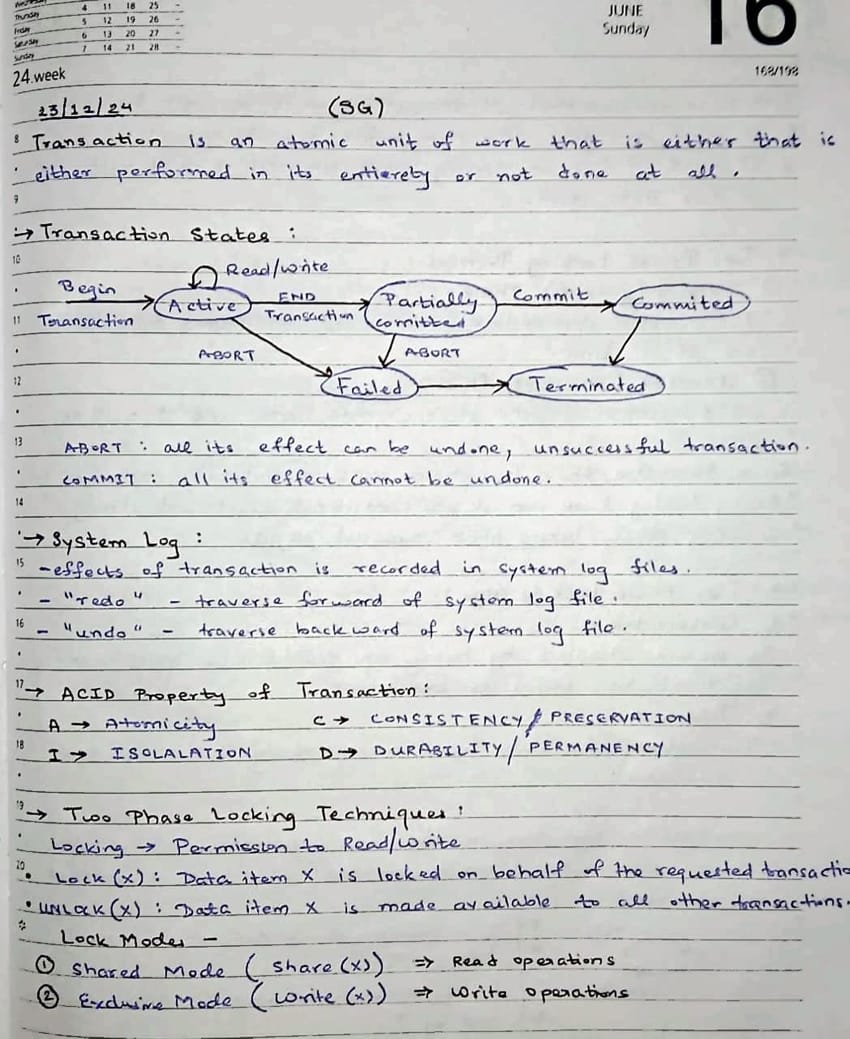 Thursday 4 11 18 25 -
Friday 5 12 19 26 -
Saturday 6 13 20 27 -
Sunday 7 14 21 28 -
JUNE
Sunday
16
24.week
168/198
23/12/24 (SG)
8 Transaction is an atomic unit of work that is either that is
either performed in its entierety or not done at all.
9
→ Transaction States :
10
Read/write
Begin Transaction
Active
END Transaction
Partially comitted
Commit
Commited
11
ABORT
ABORT
12
Failed
Terminated
13 ABORT : all its effect can be undone, unsuccessful transaction.
COMMIT : all its effect cannot be undone.
14
→ System Log :
15 -effects of transaction is recorded in system log files.
- "redo" - traverse forward of system log file.
16 - "undo" - traverse backward of system log file.
17 → ACID Property of Transaction :
A → Atomicity C → CONSISTENCY/ PRESERVATION
18 I → ISOLALATION D → DURABILITY/ PERMANENCY
19 → Two Phase Locking Techniques :
Locking → Permission to Read/write
20 • Lock (x) : Data item X is locked on behalf of the requested transactio
• UNLOCK (X) : Data item X is made available to all other transactions.
Lock Modes -
① Shared Mode ( share (x)) ⇒ Read operations
② Exclusive Mode ( write (x)) ⇒ write operations